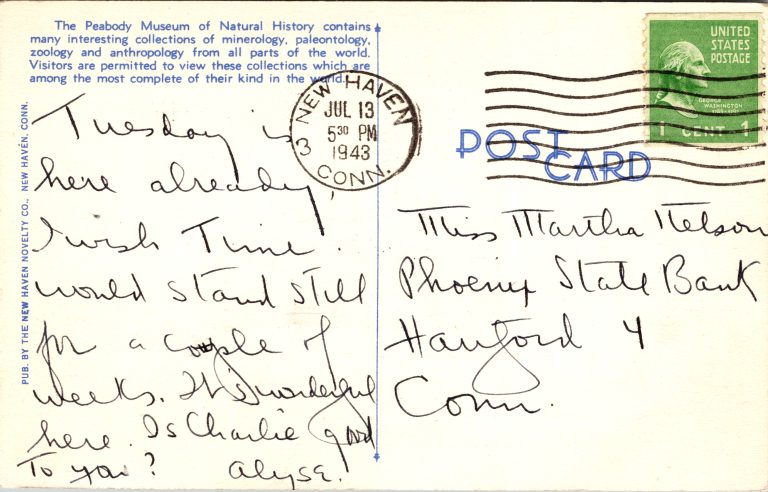 The Peabody Museum of Natural History contains
many interesting collections of minerology, paleontology,
zoology and anthropology from all parts of the world.
Visitors are permitted to view these collections which are
among the most complete of their kind in the world.
PUB. BY THE NEW HAVEN NOVELTY CO., NEW HAVEN, CONN.
Tuesday is
here already,
I wish Time
would stand still
for a couple of
weeks. It's wonderful
here. Is Charlie good
To you? Alyse.
NEW HAVEN
JUL 13
5 30 PM
1943
CONN.
3
UNITED
STATES
POSTAGE
GEORGE
WASHINGTON
1 CENT 1
POST
CARD
Miss Martha Nelson
Phoenix State Bank
Hartford 4
Conn.